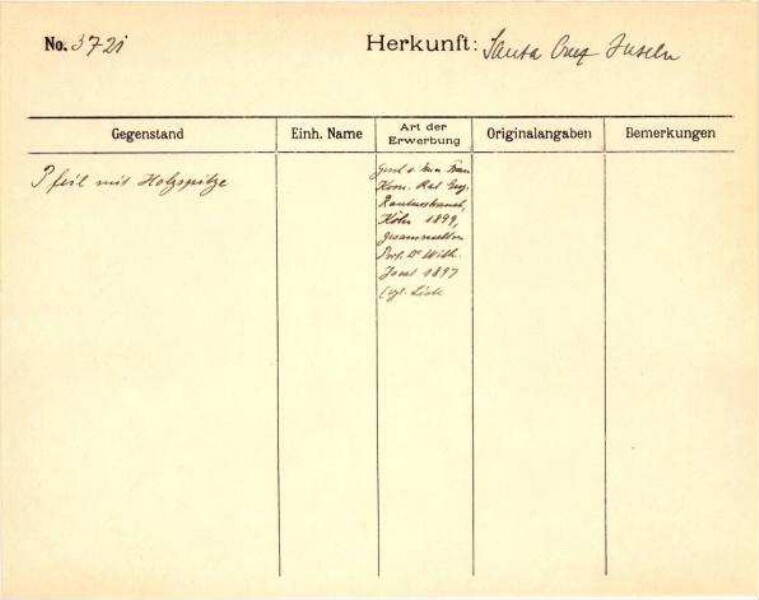 No. 3721
Herkunft: Santa Cruz Inseln
Gegenstand
Einh. Name
Art der
Erwerbung
Originalangaben
Bemerkungen
Pfeil mit Holzspitze
Frau
Kom. Rat Eug.
Rautenstrauch,
Köln 1899,
gesammelt von
Prof. Dr Wilh.
Joest 1897